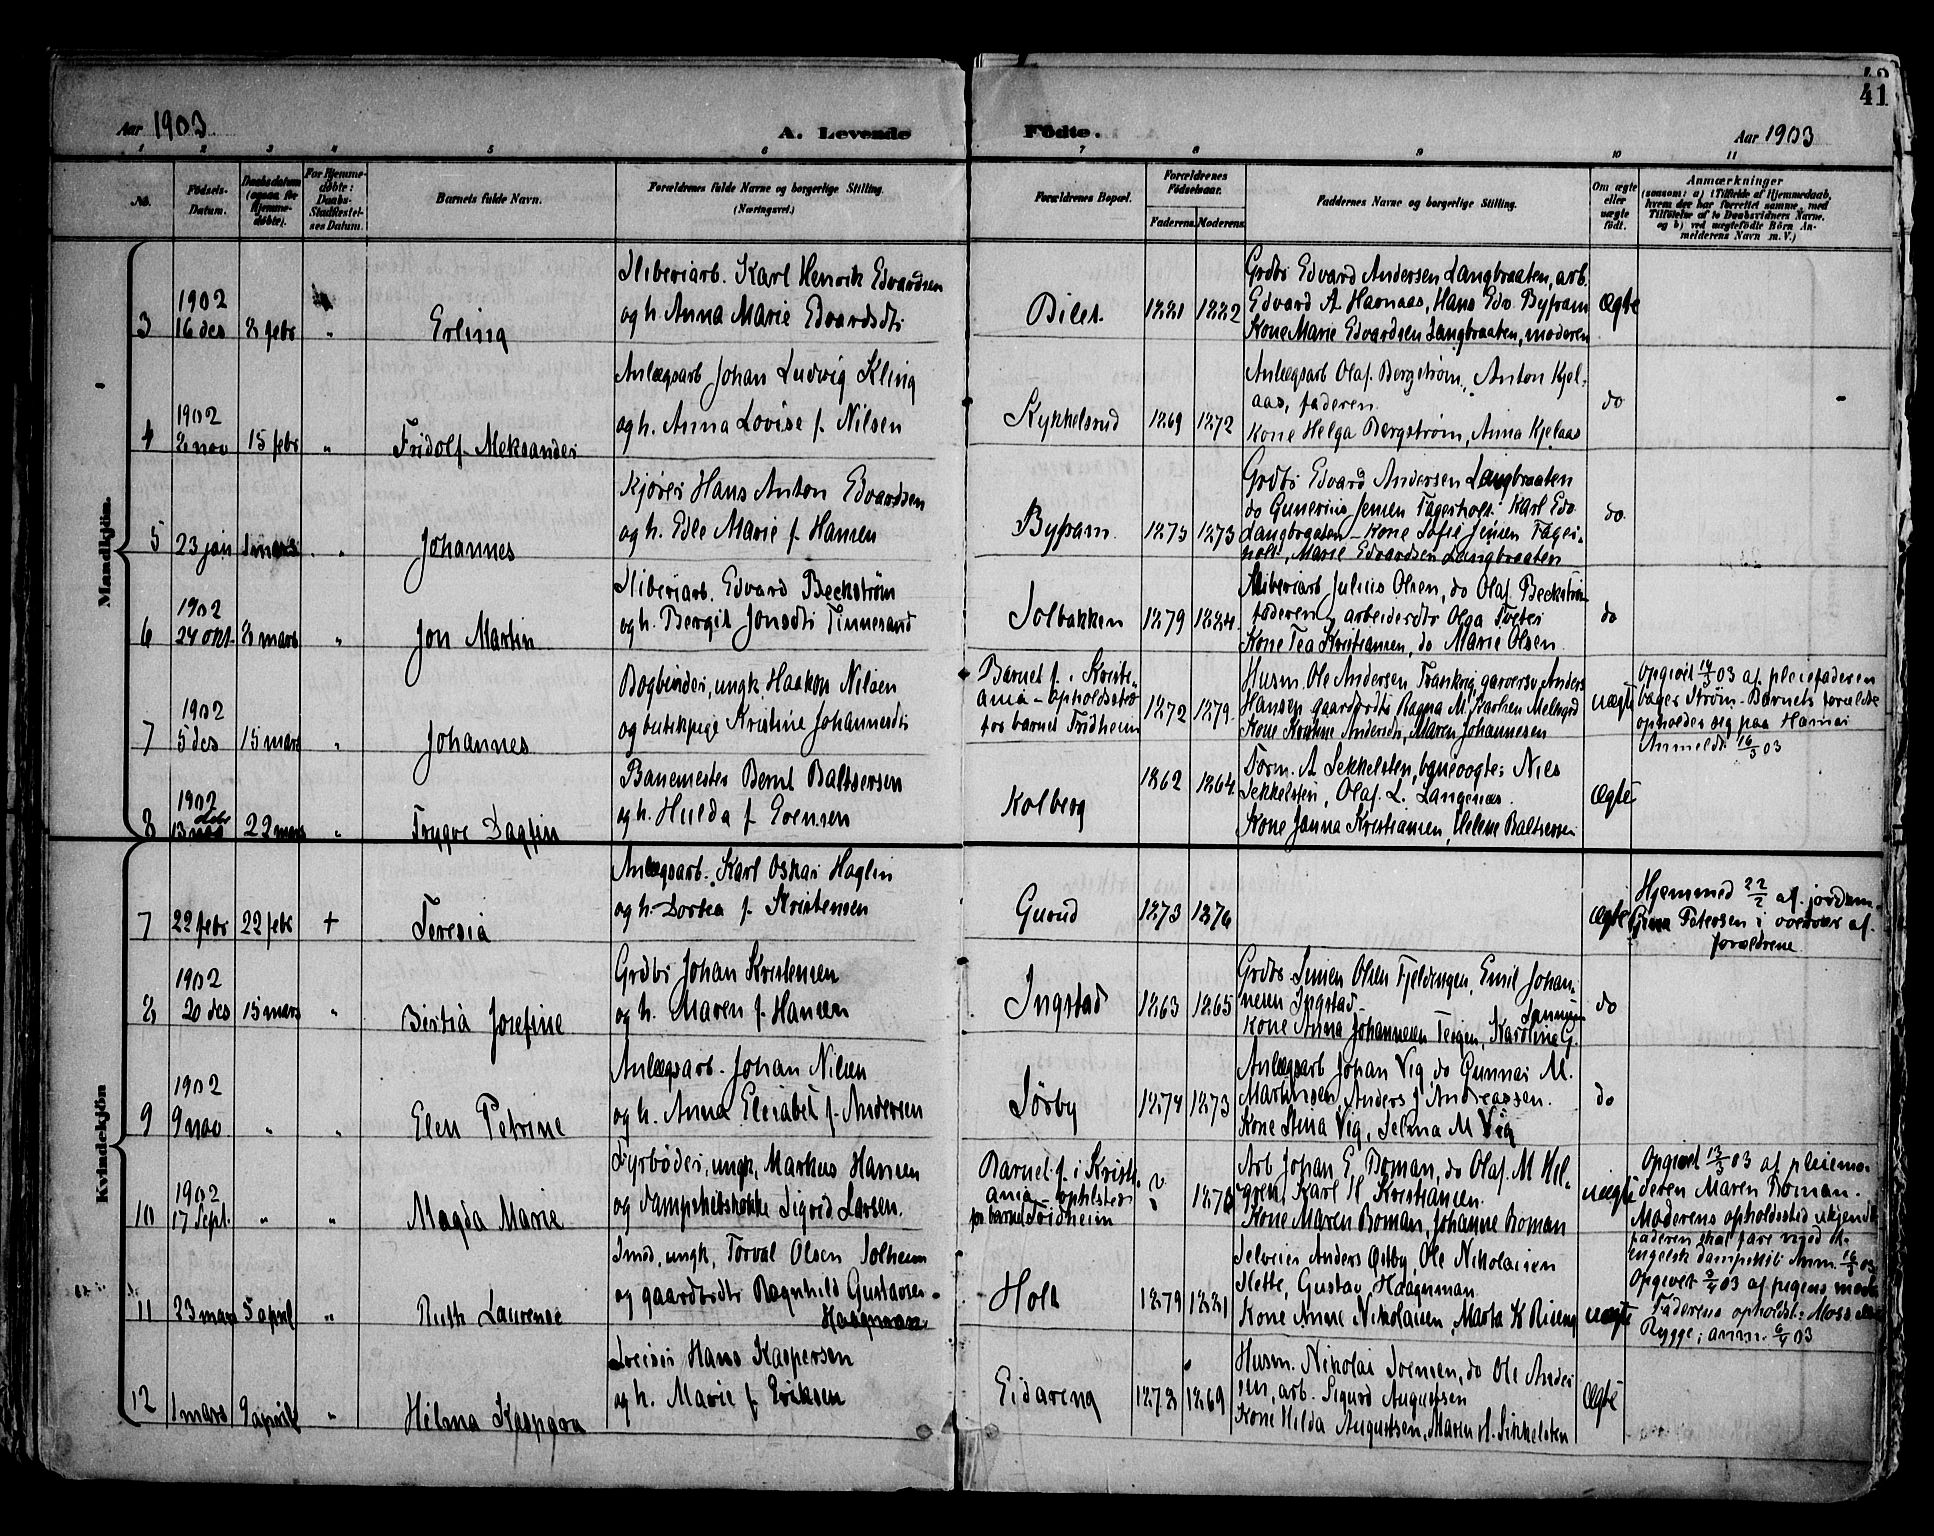 41
Aar 1903
A. Levende
Födte.
Aar 1903
1 2 3 4 5 6 7 8 9 10 11
No.
Födsels-
Datum.
Daabsdatum
(ogsaa for
Hjemme-
döbte).
For Hjemme-
döbte:
Daabs-
Stadfæstel-
ses Datum.
Barnets fulde Navn.
Forældrenes fulde Navne og borgerlige Stilling.
(Næringsvei.)
Forældrenes Bopæl.
Forældrenes
Födselsaar.
Faderens. Moderens.
Faddernes Navne og borgerlige Stilling.
Om ægte
eller
uægte
födt.
Anmærkninger
(saasom: a) i Tilfælde af Hjemmedaab,
hvem der har forrettet samme, med
Tilföielse af to Daabsvidners Navne,
og b) ved uægtefödte Börn An-
melderens Navn m. V.)
Mandkjön.
3
1902
16 des
8 febr
"
Erling
Sliberiarb. Karl Henrik Edvardsen
og h. Anna Marie Edvardsdtr
Bilet
1881
1882
Grdbr Edvard Andersen Langbraaten, arb.
Edvard A Havnaas, Hans Edv. Byfram
Kone Marie Edvardsen Langbraaten, moderen
Ægte
4
1902
8 nov
15 febr
"
Fridolf Aleksander
Anlægsarb Johan Ludvig Kling
og h. Anna Lovise f. Nilsen
Kykkelsrud
1869
1872
Anlægsarb Olaf Bergstrøm, Anton Kjel-
aas, faderen
Kone Helga Bergstrøm, Anna Kjelaas
do
5
23 jan
1 mars
"
Johannes
Kjører Hans Anton Edvardsen
og h. Edle Marie f. Hansen
Byfram
1875
1873
Grdbr Edvard Andersen Langbraaten
do Gunerius Jensen Fagerholt. Karl Edv
Langbraaten - Kone Sofie Jensen Fager-
holt, Marie Edvardsen Langbraaten
do
6
1902
24 okt.
8 mars
"
Jon Martin
Sliberiarb. Edvard Beckstrøm
og h. Bergit Jonsdtr Tinnesand
Solbakken
1879
1884
Sliberiarb Julius Olsen, do Olaf Beckstrøm
faderen, arbeiderdtr Olga
Kone Tea Kristiansen, do Marie Olsen
do
7
1902
5 des
15 mars
"
Johannes
Bogbinder, ungk. Haakon Nilsen
og butikpige Kristine Johannesdtr
Barnet f. i Kristi-
ania - opholdsste
for barnet Fridheim
1872
1879
Husm. Ole Andersen, garversv Anders
Hansen gaardbrdtr Ragna M. Karlsen Melegrd
Kone Kristine Andersen, Maren Johannesen
uægte
Opgivet 14/3 03 af pleiefaderen
bager Strøm. Barnets forældre
opholder sig paa Hamar
Anmeldt 16/3 03
8
1902
debr
13 nov
22 mars
"
Trygve Dagfin
Banemester Bernt Baltsersen
og h. Hulda f. Evensen
Kolberg
1862
1864
Form. A Sekkelsten, banevogter Nils
Sekkelsten, Olaf L. Langenæs.
Kone Janna Kristiansen, Helene Baltsersen
Ægte
Kvindekjön
7
22 febr
22 febr
+
Teresia
Anlægsarb. Karl Oskar Haglin
og h. Dortea f. Kristensen
Gurud
1873
1876
Ægte
Hjemmed 22/2 af jordem-
Petersen i overvær af
forældrene
8
1902
20 des
15 mars
"
Bertia Josefine
Grdbr Johan Kristensen
og h. Maren f. Hansen
Ingstad
1863
1865
Grdbr. Simen Olsen Fjeldengen, Emil Johan-
nesen Ingstad
Kone Anna Johannesen Teigen, Karoline G.
do
9
1902
9 nov
"
"
Elen Petrine
Anlægsarb. Johan Nilsen
og h. Anna Elisabet f. Andersen
Sørby
1874
1873
Anlægsarb Johan Vig, do Gunnar M.
Martinsen, Anders J Andreassen.
Kone Stina Vig, Selma M Vig
do
10
1902
17 Sept.
"
"
Magda Marie
Fyrbøder, ungk, Markus Hansen
og Dampskibskokke Sigrid Larsen.
Barnet f. i Kristi-
ania - opholdsted
for barnet Fridheim
?
1878
Arb Johan E Boman, do Olaf M Hel-
gren, Karl H. Kristiansen.
Kone Maren Boman, Johanne Boman
uægte
Opgivet 13/3 03 af pleiemo-
deren Maren Boman.
Moderens opholdssted ukjendt
faderen skal fare med et
engelsk dampskib Anm. 16/3 03
11
23 mars
5 april
"
Ruth Laurense
Smed, ungk, Torval Olsen Solheim
og gaardbrdtr Ragnhild Gustavsen
Haagenman
Holt
1879
1881
Selveier Anders Østby, Ole Nikolaisen
Slette, Gustav Haagenman
Kone Anne Nikolaisen, Marta K
uægte
Opgivet 3/4 03 af pigens moder
Faderens opholdst: Moss eller
Rygge; anm. 6/4 03
12
1 mars
9 april
"
Hilma Kaspara
Sveiser Hans Kaspersen
og h. Marie f Eriksen
Eidareng
1873
1869
Husm. Nikolai Svensen, do Ole Ander
sen, arb. Sigurd Augustsen
Kone Hilda Augustsen, Maren A. Sikkelsten
Ægte